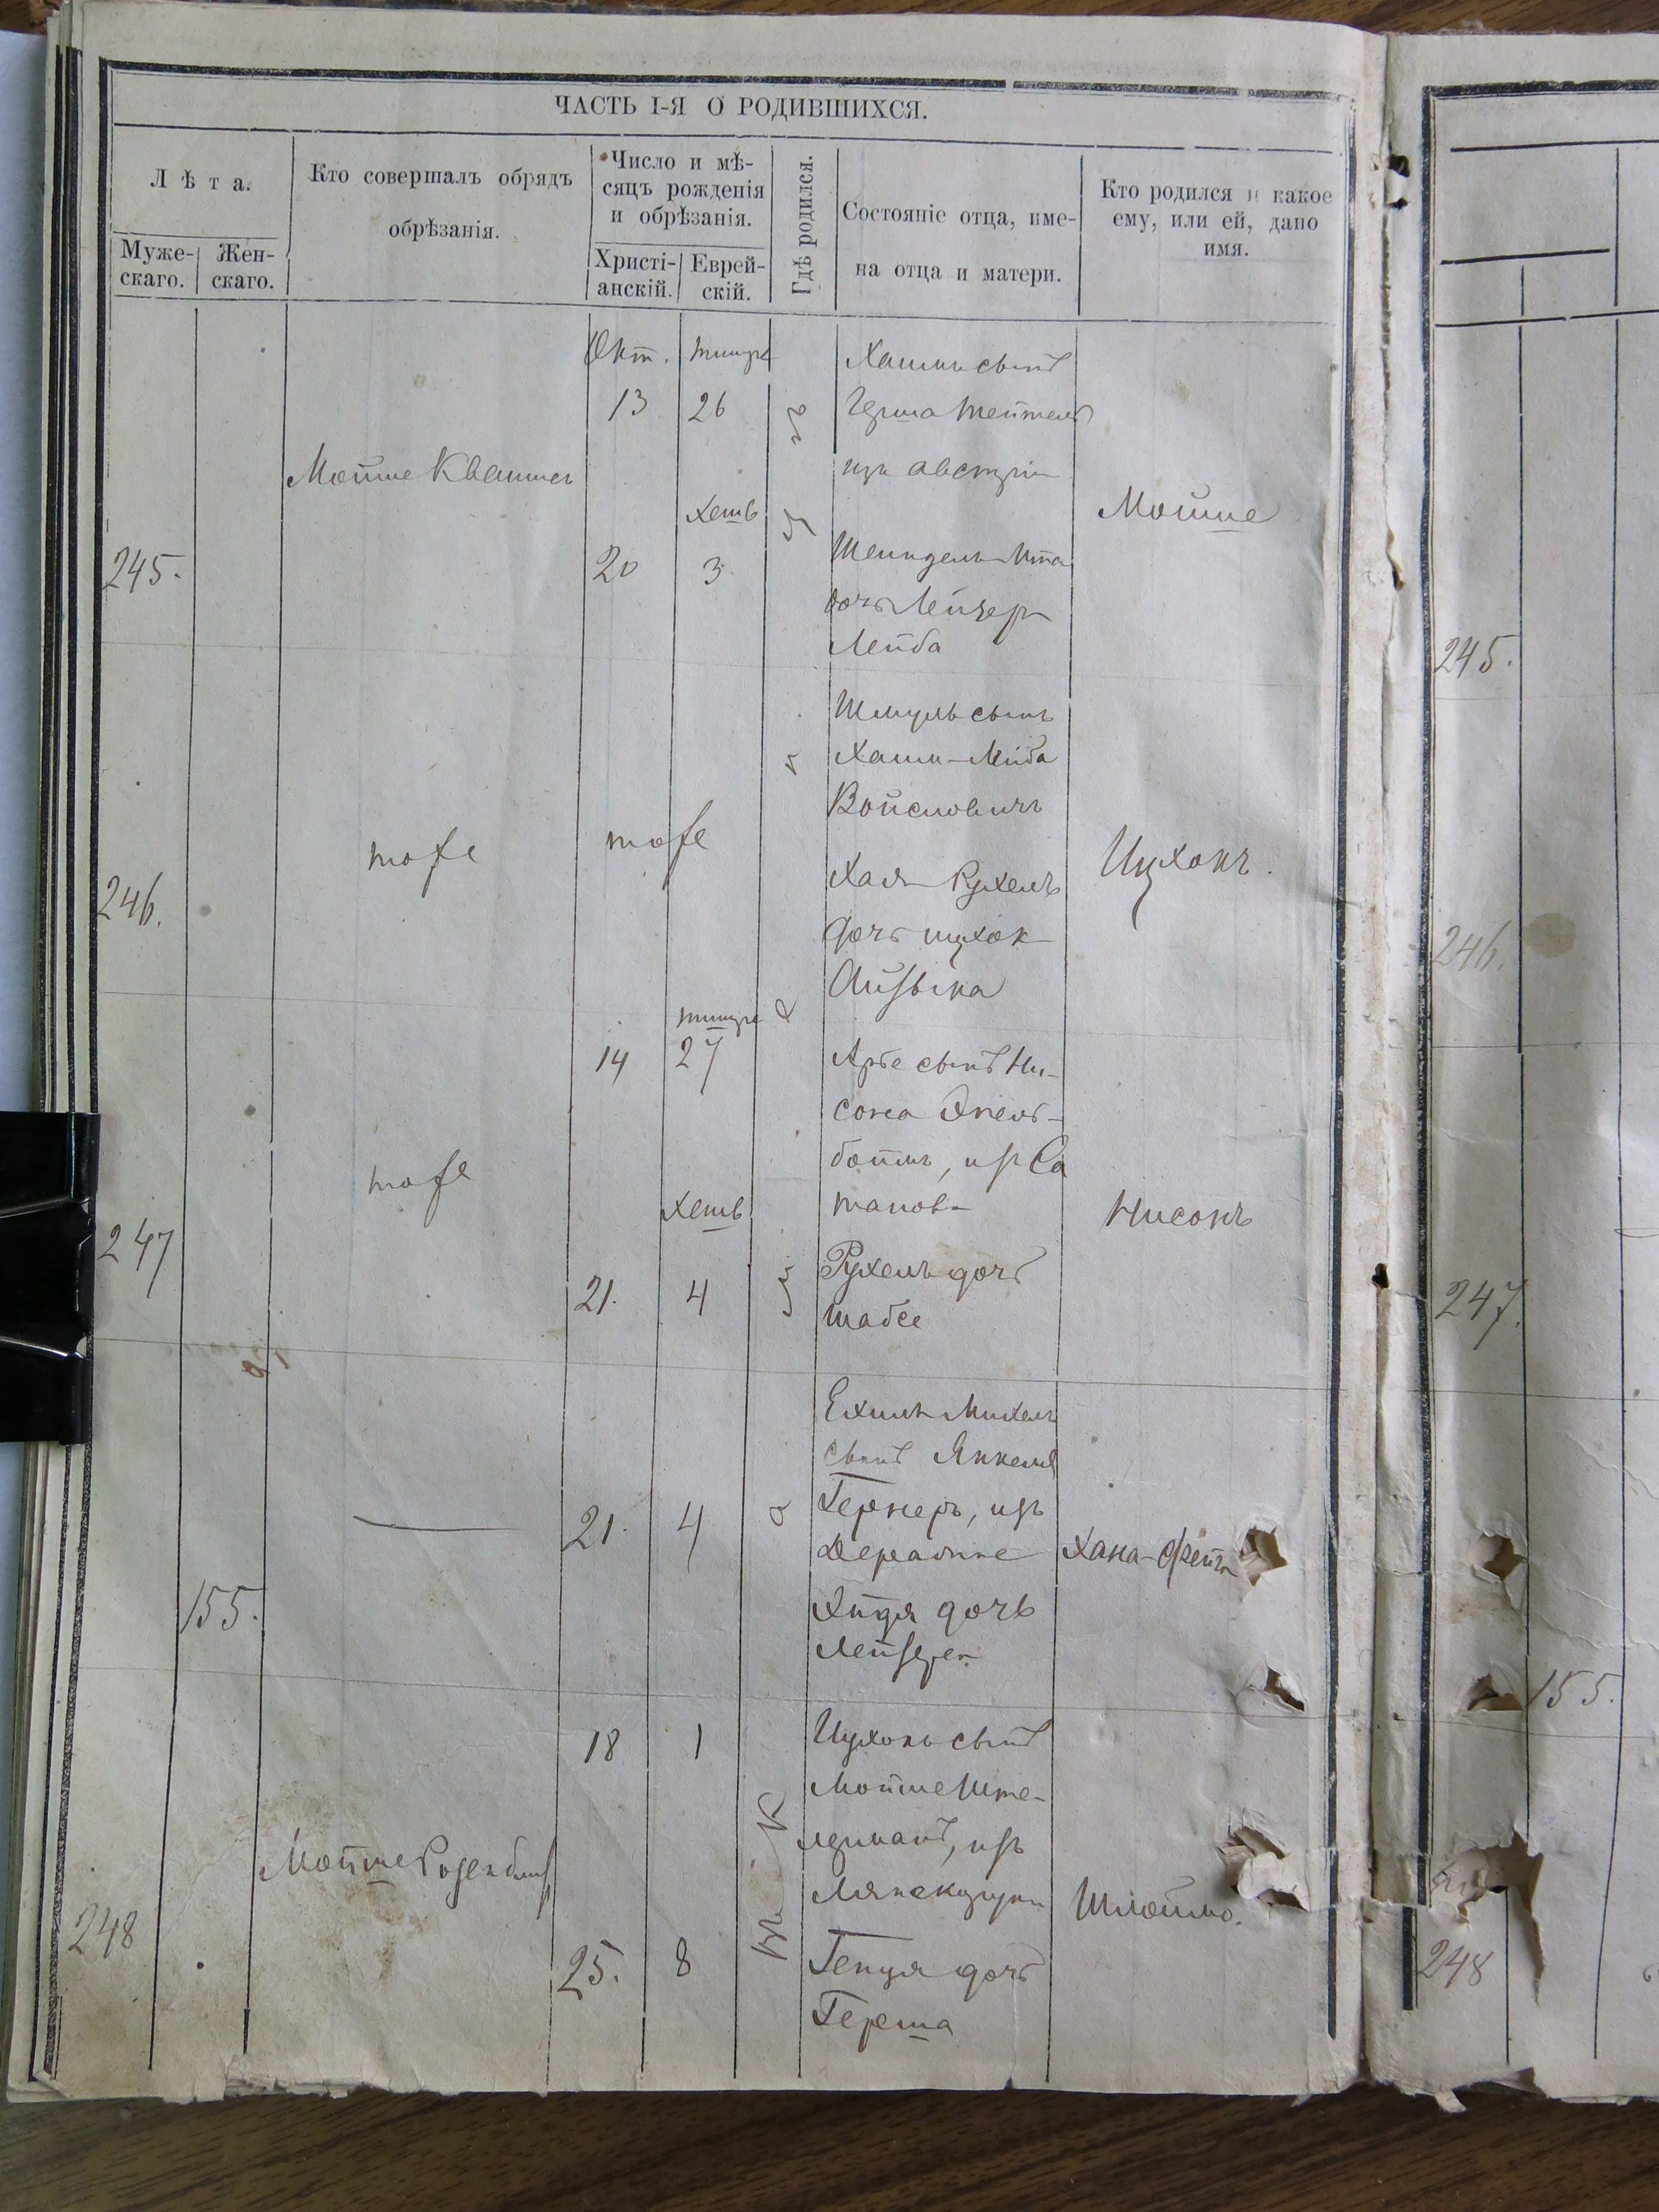 ЧАСТЬ I-Я О РОДИВШИХСЯ.
Лѣта.
Муже-
скаго.
Жен-
скаго.
Кто совершалъ обрядъ
обрѣзанія.
Число и мѣ-
сяцъ рожденія
и обрѣзанія.
Христі-
анскій.
Еврей-
скій.
Гдѣ родился.
Состояніе отца, име-
на отца и матери.
Кто родился и какое
ему, или ей, дано
имя.
245.
Мойше
Окт. тишре
13 26
Хешв
20 3
Хаимъ сынъ
Герша Тейтель
изъ Австріи
Шейндель Ита
дочь Лейзера
Лейба
Мойше
246.
тоже
тоже
Шмуль сынъ
Хаим-Лейба
Войсловичъ
Хая Рухель
дочь Ицхок
Айзыка
Ицхокъ.
247
тоже
тишре
14 27
Хешв
21. 4
Арье сынъ Ни-
сона
изъ Са
танов
Рухель дочь
Шабсе
Нисонъ
155.
21. 4
Ехиль Михель
сынъ Янкеля
Гернеръ, изъ
дочь
Лейзера
Хана-Фейга
248
18 1
25. 8
Ицхокъ сынъ
Мойше Ште-
изъ
Генця дочь
Герша
Шлоймо.
245.
246.
247.
155.
248